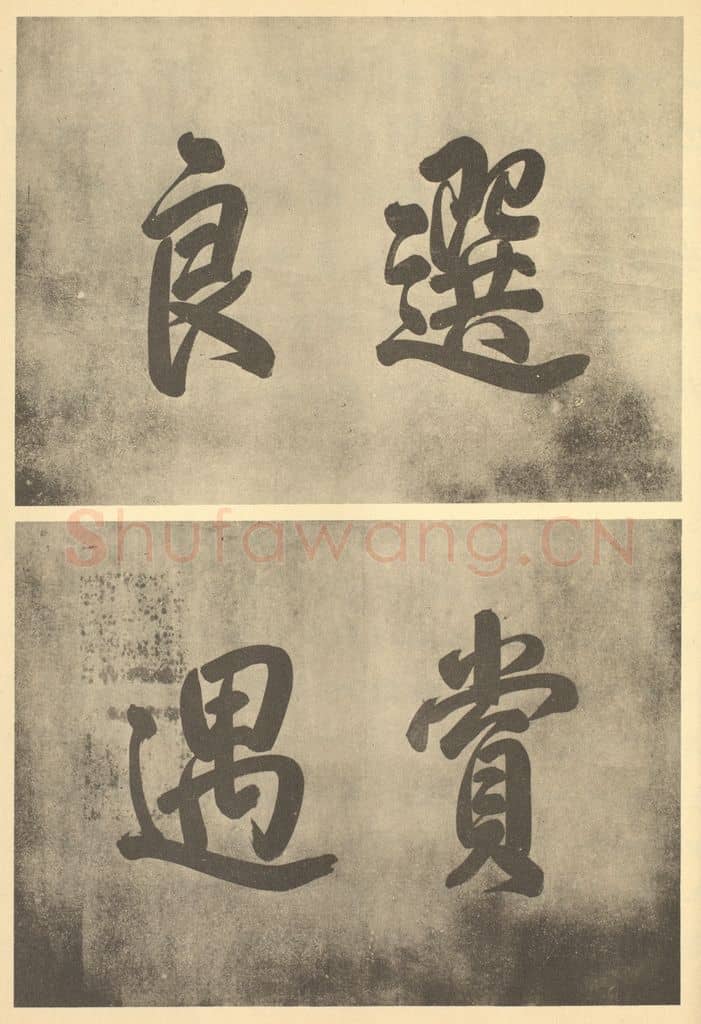 選良
Shufawang.CN
賞遇